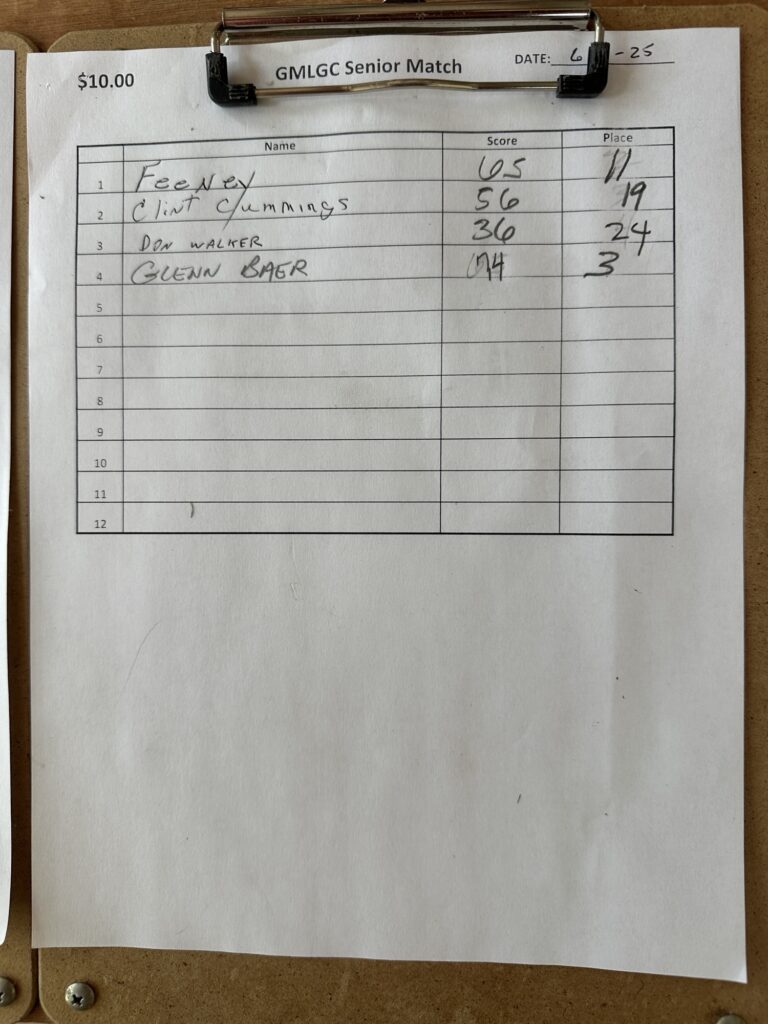 $10.00 GMLGC Senior Match DATE: 6 -25
Name Score Place
1 FeeNey 65 11
2 Clint Cummings 56 19
3 DON WALKER 36 24
4 GLENN BAER 74 3
5
6
7
8
9
10
11
12